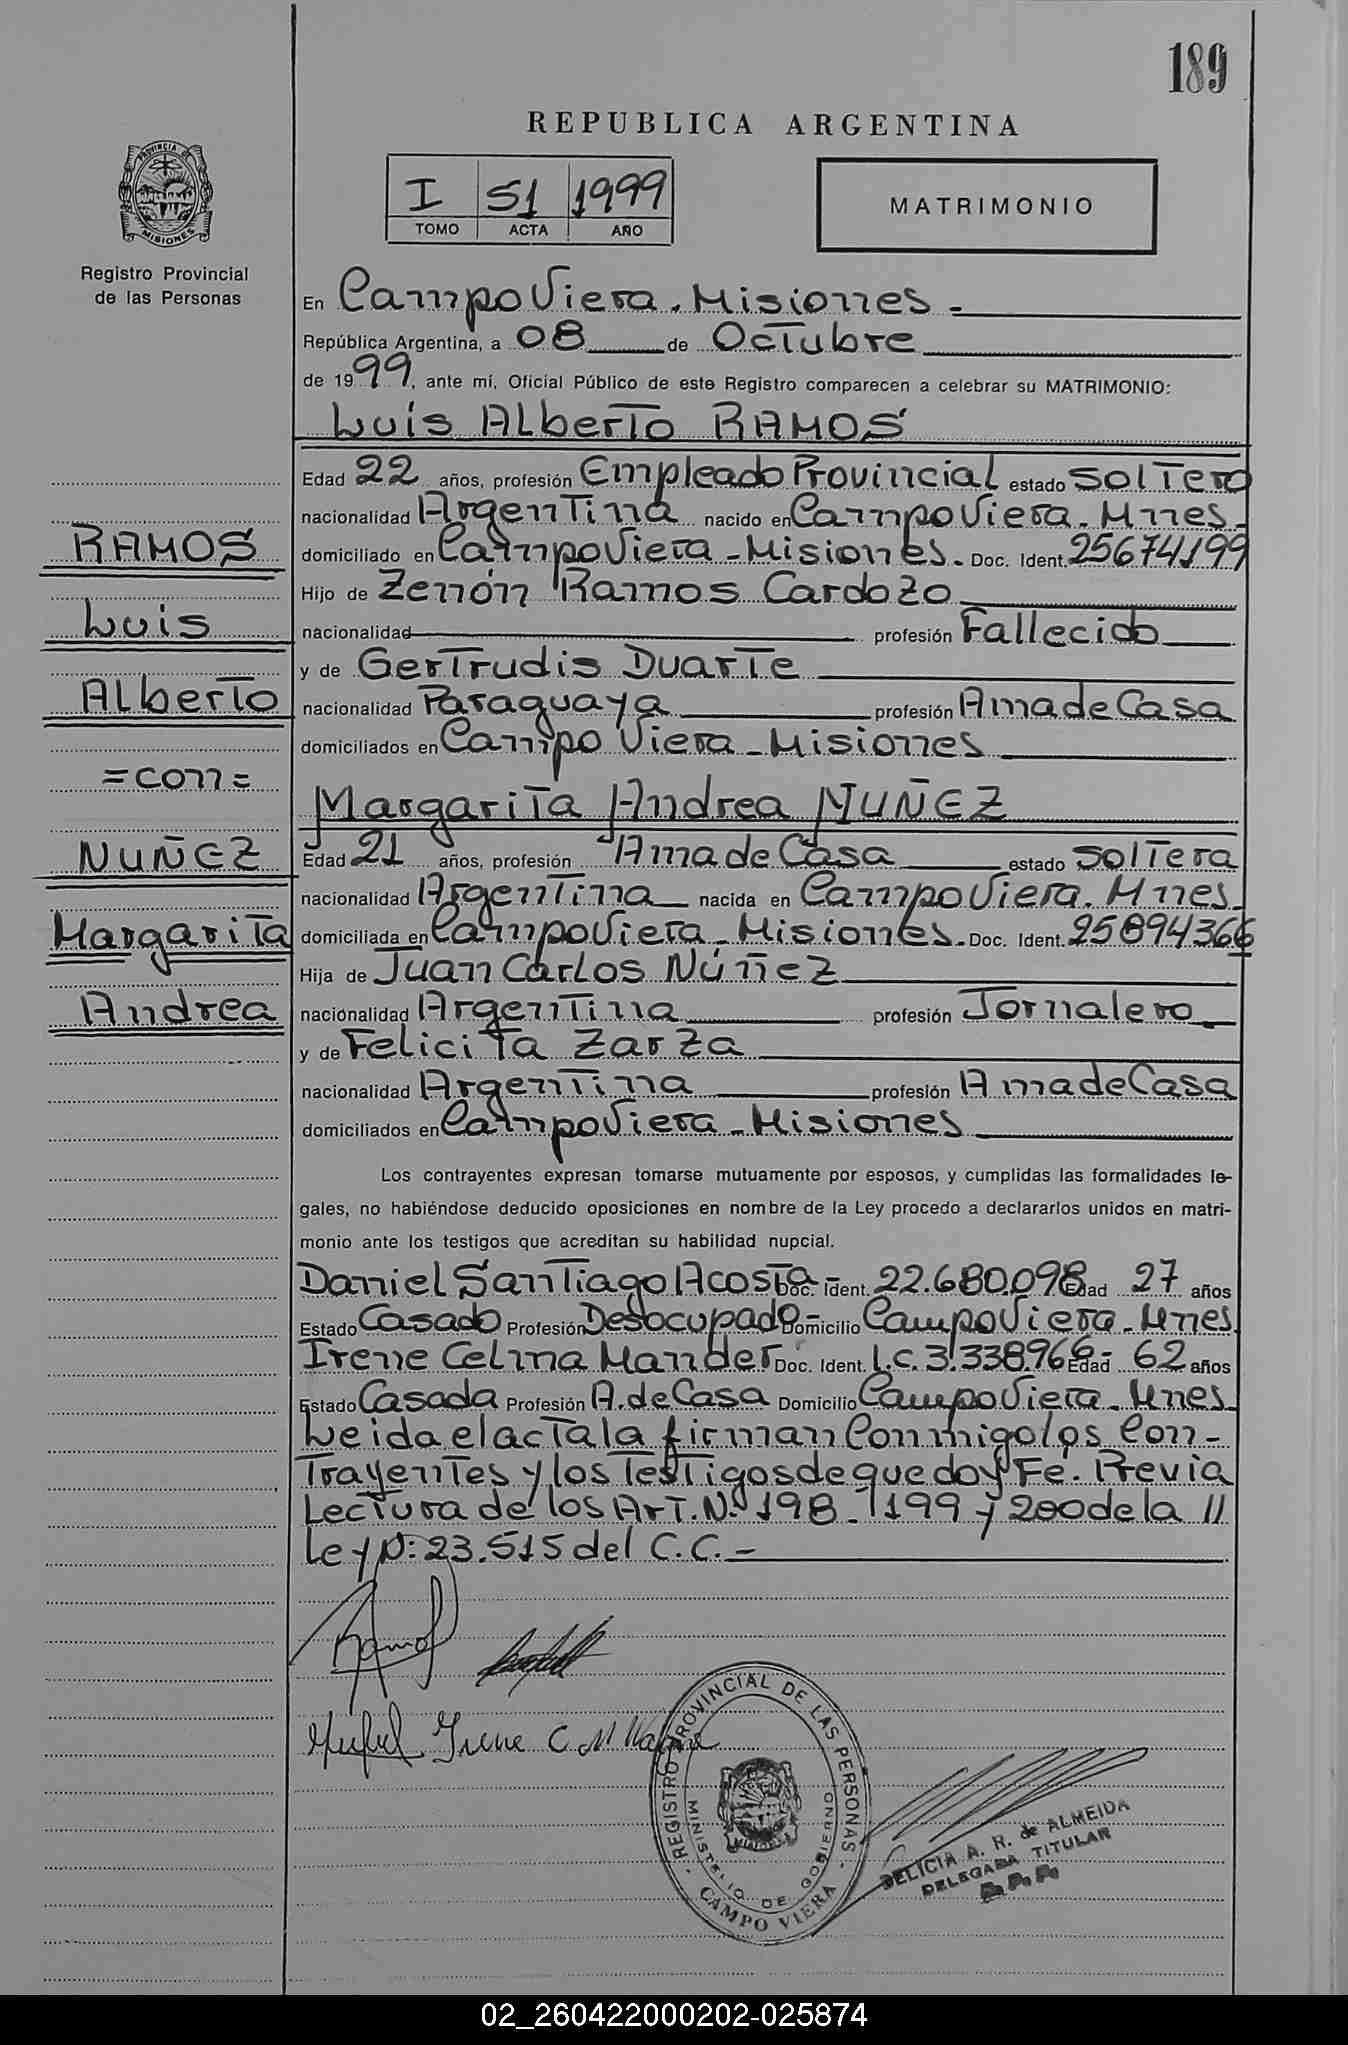 189
REPUBLICA ARGENTINA
PROVINCIA DE
MISIONES
Registro Provincial
de las Personas
I 51 1999
TOMO ACTA AÑO
MATRIMONIO
En Campo Viera. Misiones -
República Argentina, a 08 de Octubre
de 1999, ante mí, Oficial Público de este Registro comparecen a celebrar su MATRIMONIO:
Luis Alberto RAMOS
Edad 22 años, profesión Empleado Provincial estado Soltero
nacionalidad Argentina nacido en Campo Viera. Mnes-
domiciliado en Campo Viera - Misiones. Doc. Ident. 25674199
Hijo de Zenón Ramos Cardozo
nacionalidad profesión Fallecido
y de Gertrudis Duarte
nacionalidad Paraguaya profesión Ama de Casa
domiciliados en Campo Viera - Misiones
Margarita Andrea NUÑEZ
Edad 21 años, profesión Ama de Casa estado Soltera
nacionalidad Argentina nacida en Campo Viera. Mnes-
domiciliada en Campo Viera - Misiones. Doc. Ident. 25894366
Hija de Juan Carlos Núñez
nacionalidad Argentina profesión Jornalero
y de Felicita Zarza
nacionalidad Argentina profesión Ama de Casa
domiciliados en Campo Viera - Misiones
RAMOS
Luis
Alberto
=con=
NUÑEZ
Margarita
Andrea
Los contrayentes expresan tomarse mutuamente por esposos, y cumplidas las formalidades le-
gales, no habiéndose deducido oposiciones en nombre de la Ley procedo a declararlos unidos en matri-
monio ante los testigos que acreditan su habilidad nupcial.
Daniel Santiago Acosta Doc. Ident. 22.680.098 Edad 27 años
Estado Casado Profesión Desocupado- Domicilio Campo Viera - Mnes
Irene Celina Mander Doc. Ident. L.C. 3.338.966- Edad 62 años
Estado Casada Profesión A. de Casa Domicilio Campo Viera - Mnes
Leida el acta la firman Conmigo los Con-
Trayentes y los Testigos de que doy Fe. Previa
Lectura de los Art. Nº 198 - 199 y 200 de la //
Ley Nº: 23.515 del C.C.-
Ramos
Irene C. M
REGISTRO PROVINCIAL DE LAS PERSONAS
MINISTERIO DE GOBIERNO
CAMPO VIERA
DELICIA A. R. de ALMEIDA
DELEGADA TITULAR
R.P.P.
02_260422000202-025874